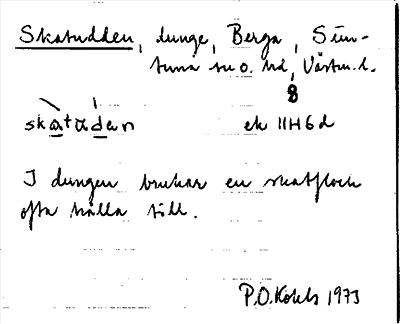 Skatudden, dunge, Berga, Sim-
tuna sn o. hd, Västm. l.
8
skatudən ek 11H6d
I dungen brukar en skatflock
ofta hålla till.
P.O. Kohls 1973